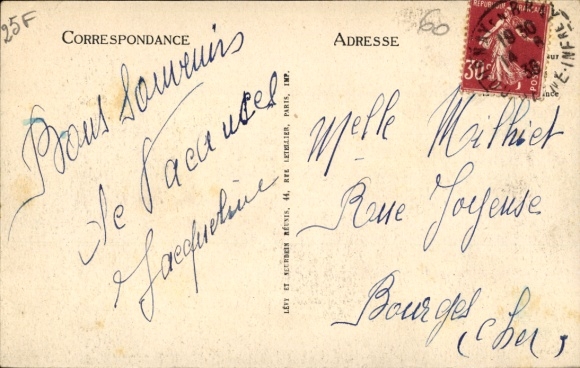 25F
60
CORRESPONDANCE
ADRESSE
Bons Souvenirs
de Vacances
Jacqueline
LÉVY ET NEURDEIN RÉUNIS, 44, RUE LETELLIER, PARIS, IMP.
RÉPUBLIQUE FRANÇAISE
30c
POSTES
19 30
14
36
INFRE
Melle Milhiet
Rue Joyeuse
Bourges
(Cher)